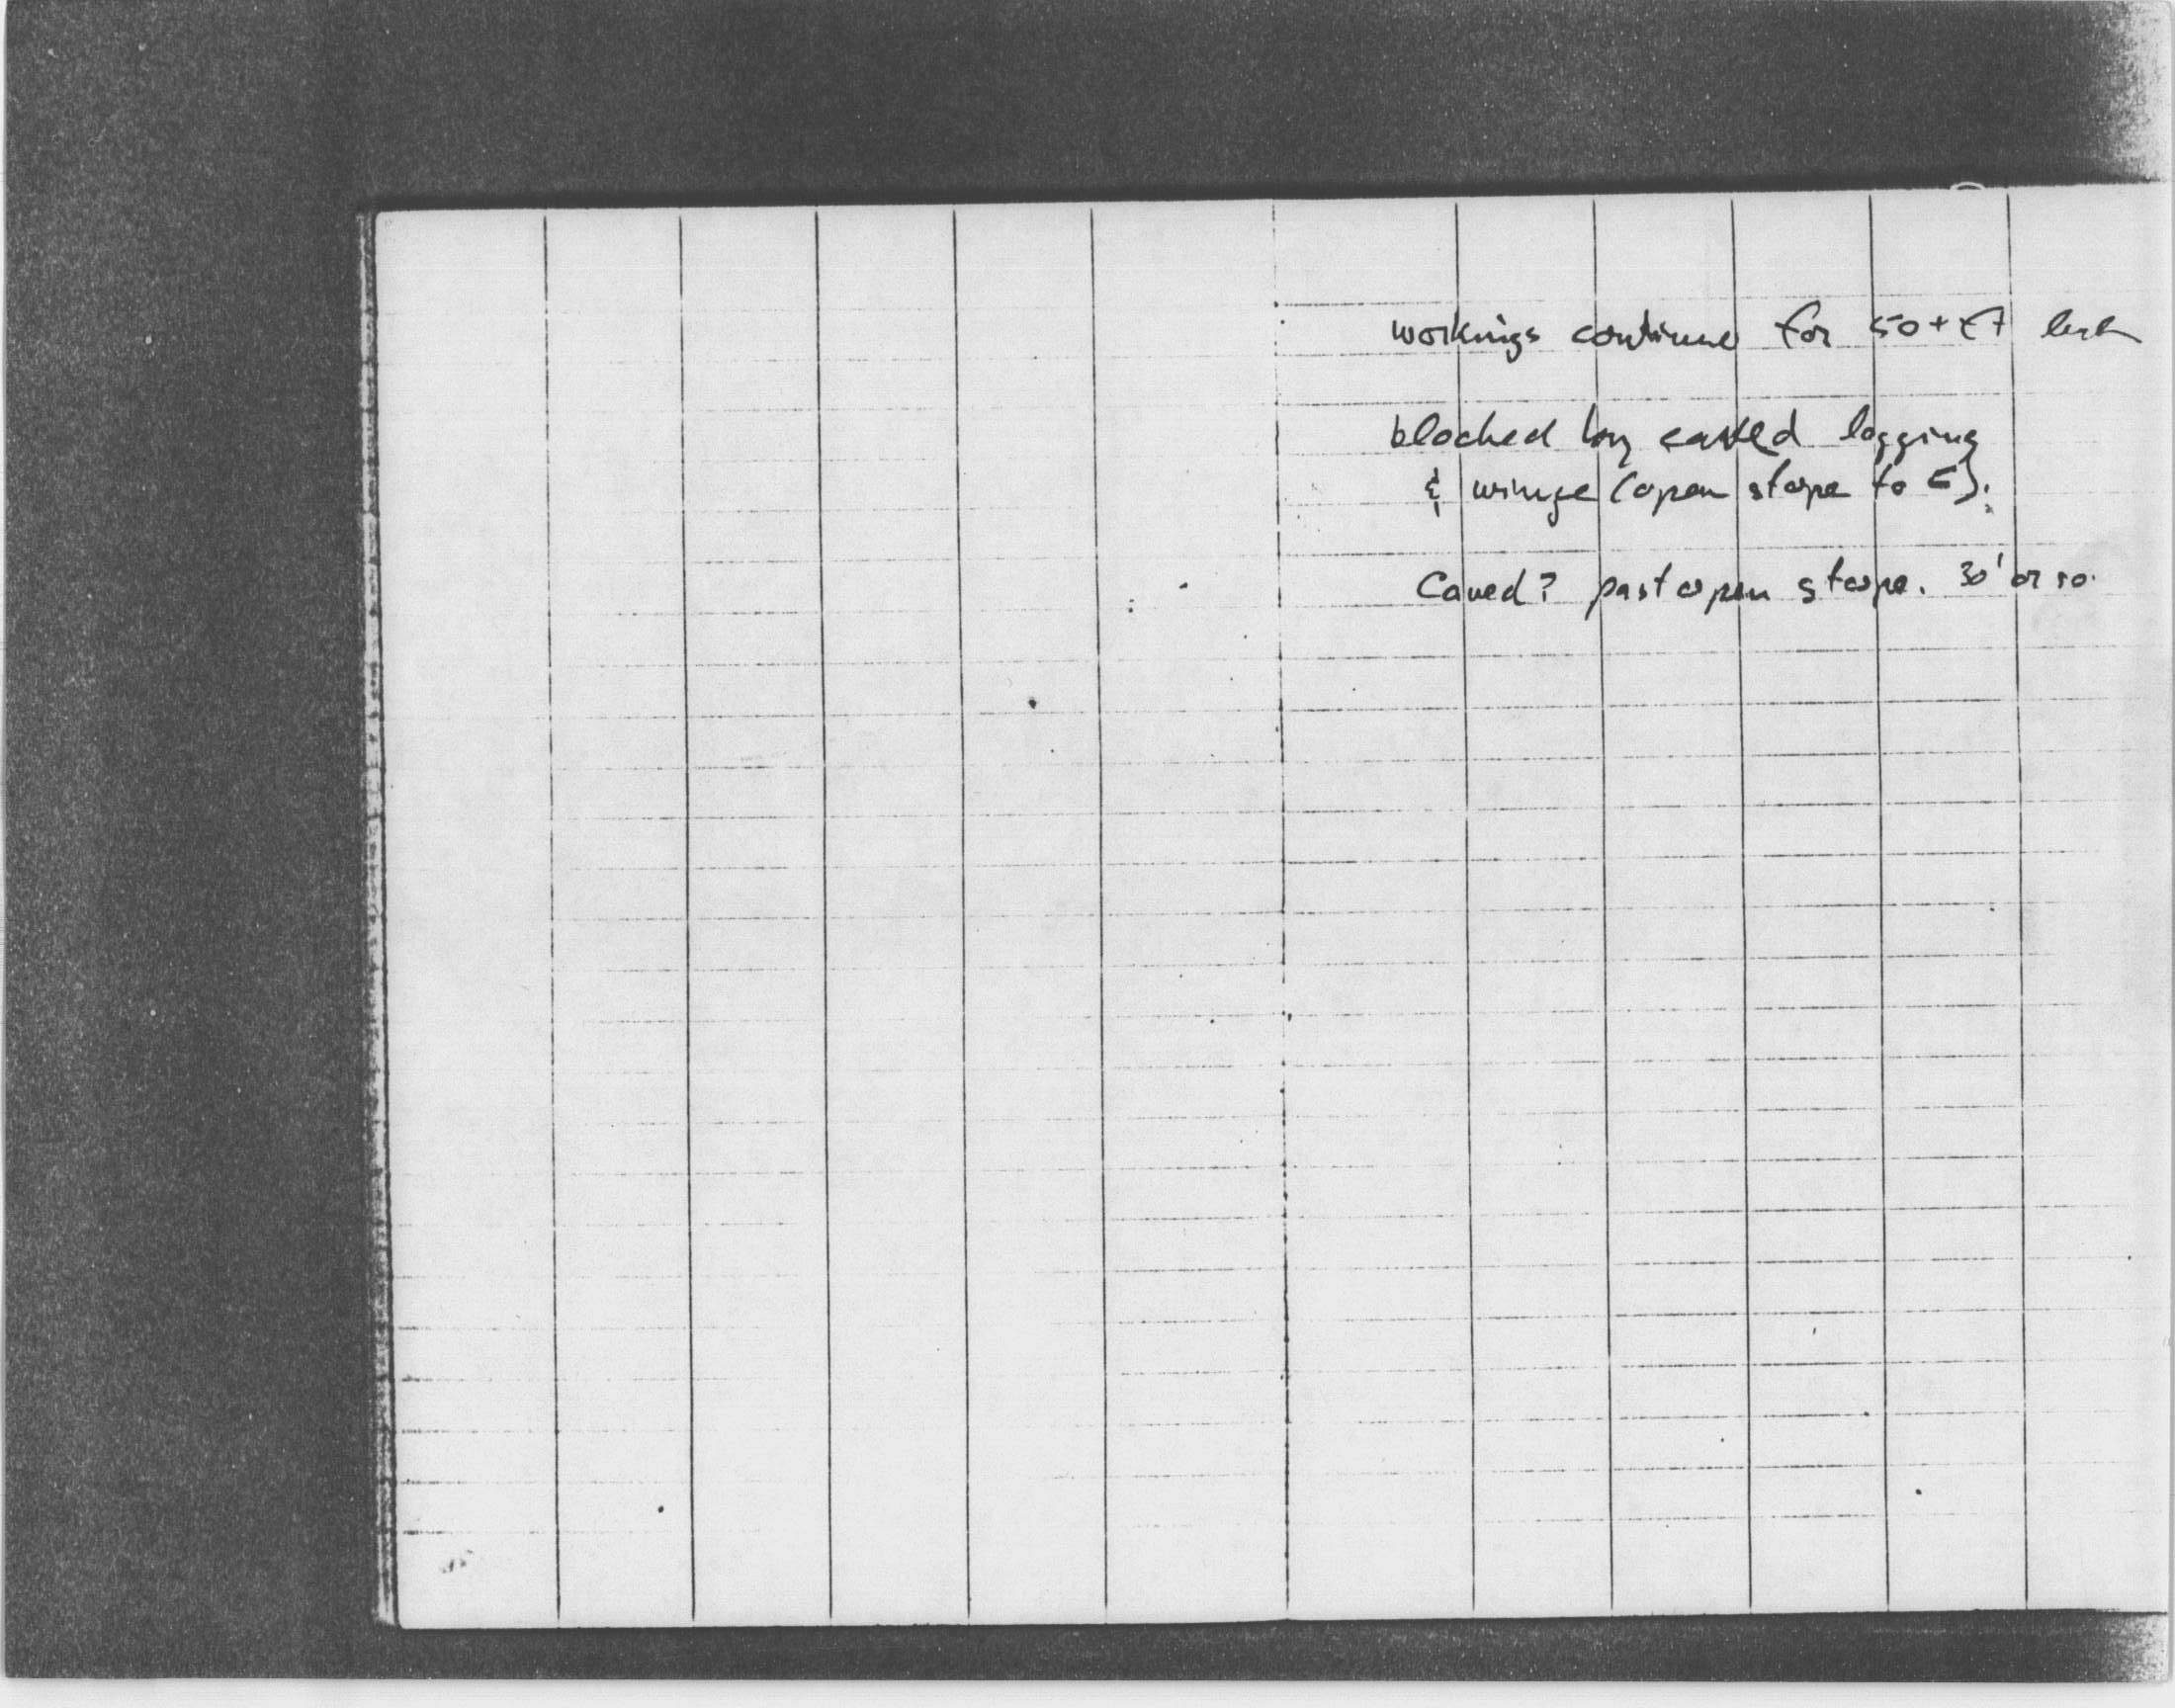 workings continue for 50+ ft
blocked by caved lagging
& winze (open stope to
Caved? past open stope. 30' or so.